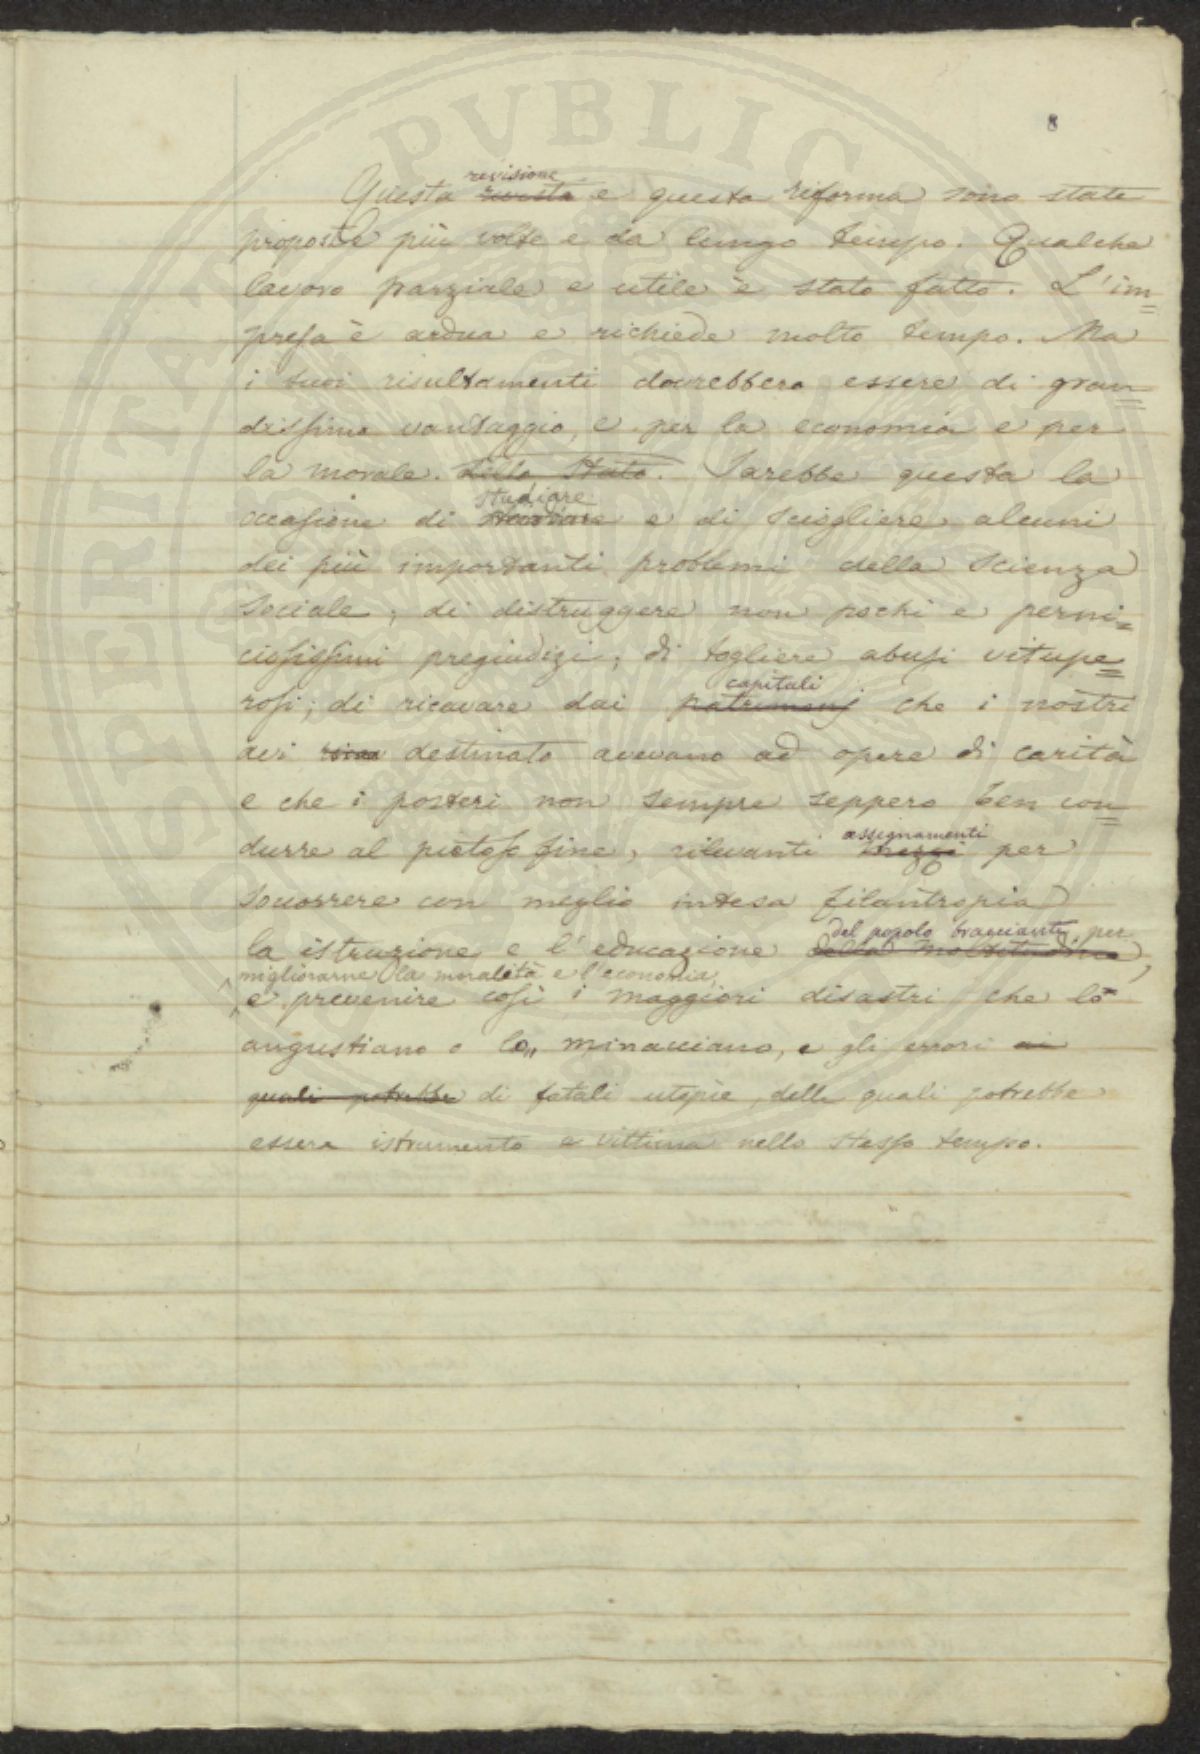 8
Questa revisione rivista e questa riforma sono state
proposte più volte e da lungo tempo. Qualche
lavoro parziale e utile è stato fatto. L'im=
presa è ardua e richiede molto tempo. Ma
i suoi risultamenti dovrebbero essere di gran=
dissimo vantaggio, e per la economia e per
la morale. dello Stato. Sarebbe questa la
occasione di studiare e di sciogliere alcuni
dei più importanti problemi della scienza
sociale, di distruggere non pochi e perni=
ciosissimi pregiudizi; di togliere abusi vitupe=
rosi; di ricavare dai capitali patrimonj che i nostri
avi destinato avevano ad opere di carità
e che i posteri non sempre seppero ben con=
durre al pietoso fine, rilevanti assegnamenti mezzi per
soccorrere con meglio intesa filantropia
la istruzione e l'educazione del popolo bracciante, per della moltitudine,
migliorarne la moralità e l'economia,
e prevenire così i maggiori disastri che lo
angustiano o lo minacciano, e gli errori ai
quali potrebbe di fatali utopie, delle quali potrebbe
essere istrumento e vittima nello stesso tempo.